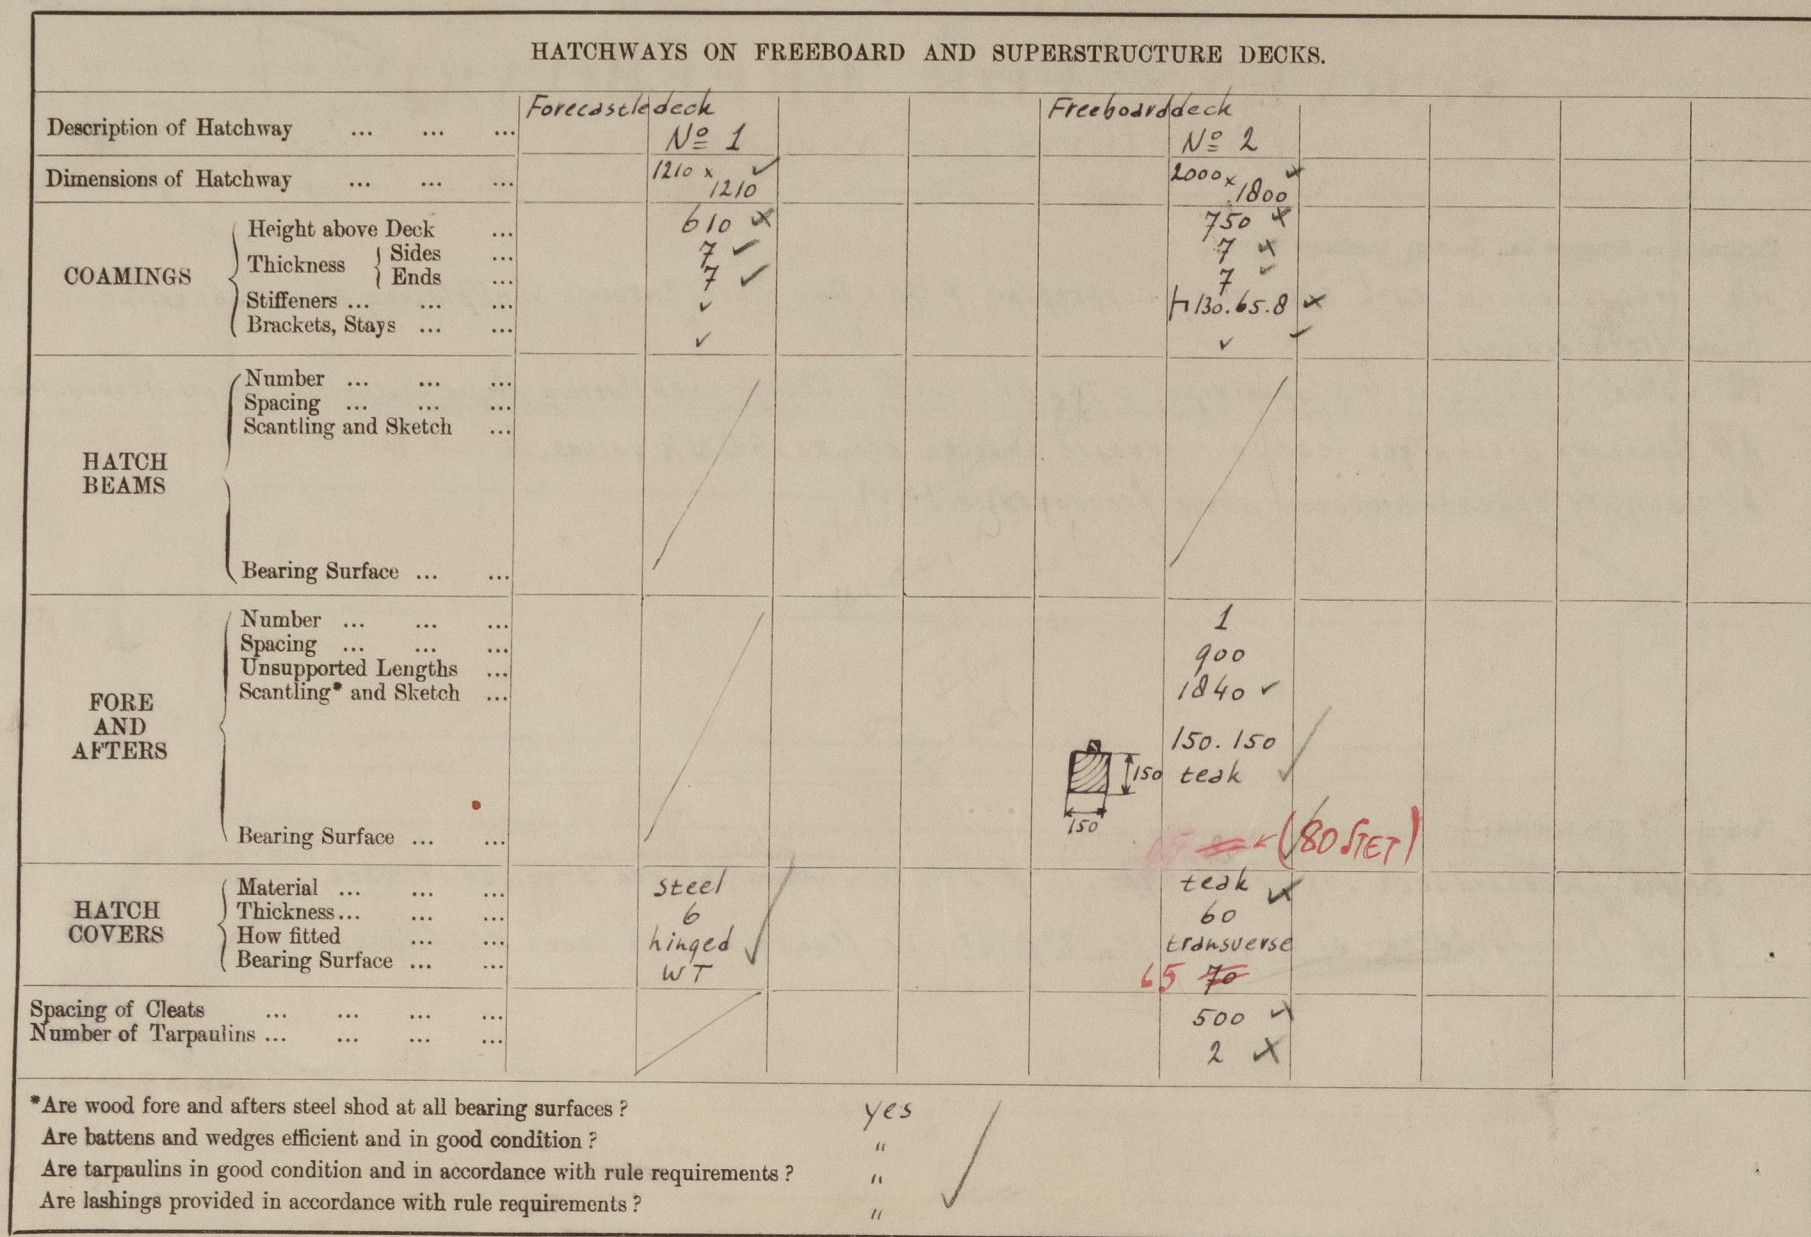 HATCHWAYS ON FREEBOARD AND SUPERSTRUCTURE DECKS.
Forecastle deck Freeboard deck
Description of Hatchway ... ... ... Nº 1 Nº 2
Dimensions of Hatchway ... ... ... 1210 x 1210 ✓ 2000 x 1800
COAMINGS
Height above Deck ... 610 750
Thickness
Sides ... 7 ✓ 7
Ends ... 7 ✓ 7 ✓
Stiffeners ... ... ... ✓ 130.65.8
Brackets, Stays ... ... ✓ ✓
HATCH BEAMS
Number ... ... ...
Spacing ... ... ...
Scantling and Sketch ...
Bearing Surface ... ...
FORE AND AFTERS
Number ... ... ... 1
Spacing ... ... ... 900
Unsupported Lengths ... 1840 ✓
Scantling* and Sketch ...
150.150
150 teak ✓
150
Bearing Surface ... ... (80 STET)
HATCH COVERS
Material ... ... ... steel teak
Thickness ... ... ... 6 60
How fitted ... ... hinged ✓ transverse
Bearing Surface ... ... WT 65 70
Spacing of Cleats ... ... ... ... 500
Number of Tarpaulins ... ... ... ... 2
*Are wood fore and afters steel shod at all bearing surfaces? yes
Are battens and wedges efficient and in good condition? "
Are tarpaulins in good condition and in accordance with rule requirements? "
Are lashings provided in accordance with rule requirements? "